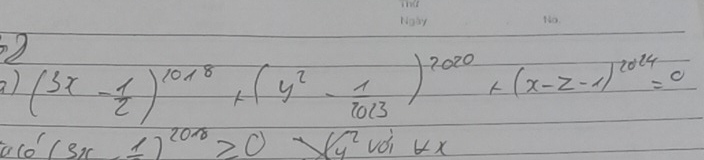 Thứ
Ngày No.
a) (3x - 1/2)^2018 + (y² - 1/2023)^2020 + (x-z-1)^2024 = 0
có (3x - 1/2)^2018 ≥ 0 với ∀x